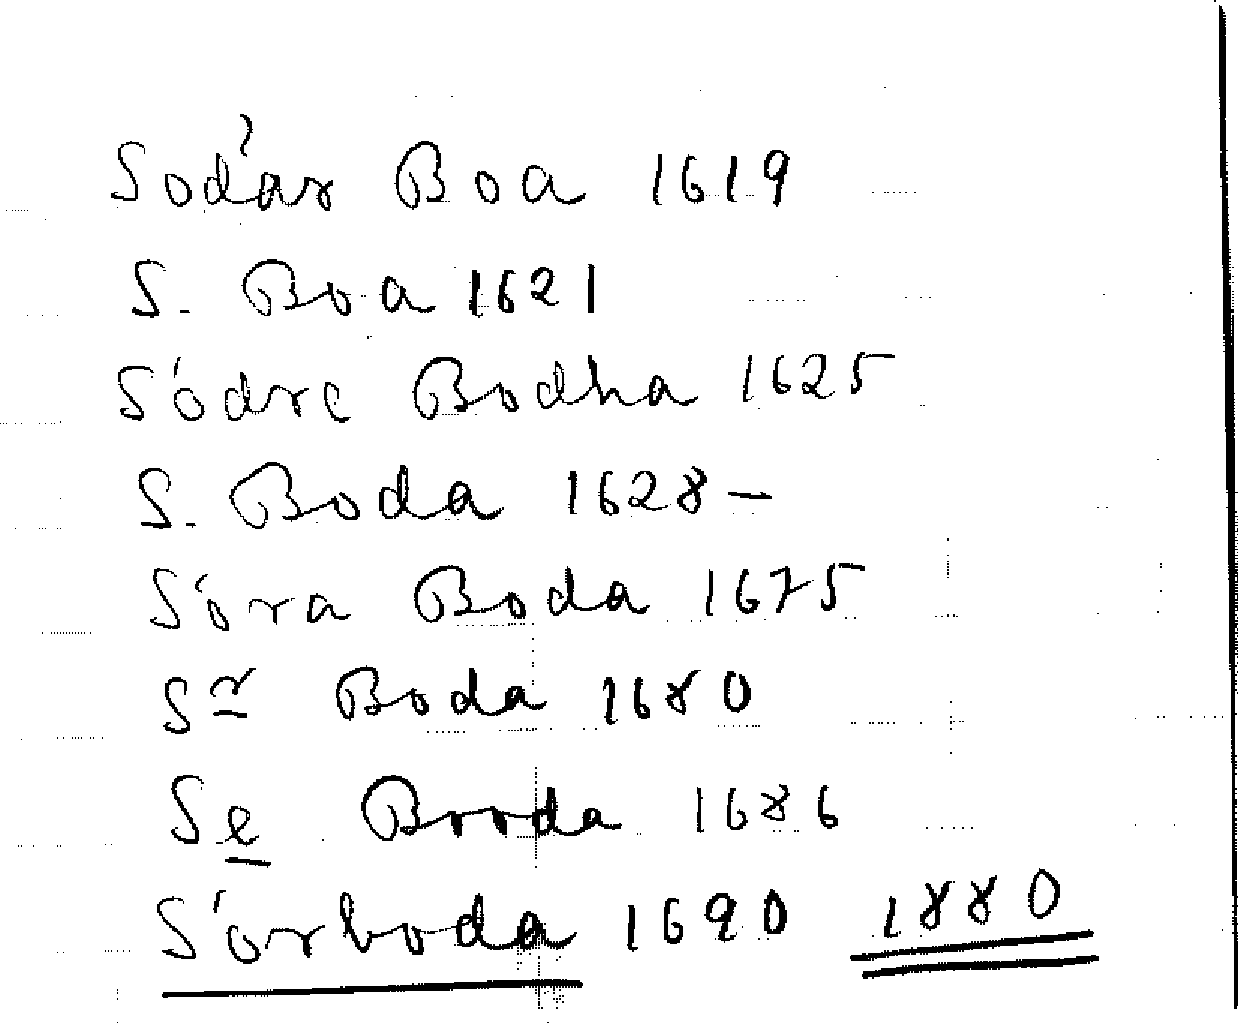 Sodår Boa 1619
S. Boa 1621
Södre Bodha 1625
S. Boda 1628 –
Söra Boda 1675
Sr Boda 1680
Se Booda 1686
Sörboda 1690 1880